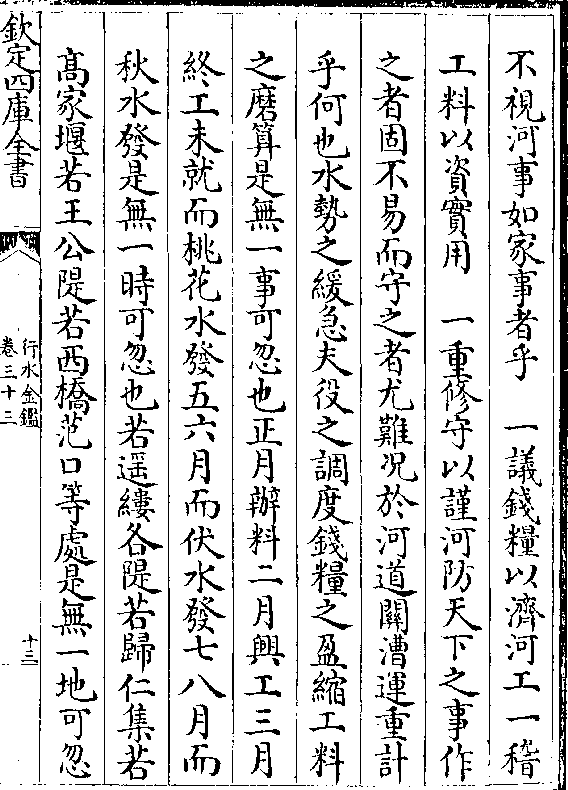 不視河事如家事者乎　一議錢糧以濟河工一稽
工料以資實用　一重修守以謹河防天下之事作
之者固不易而守之者尤難况於河道關漕運重計
乎何也水勢之緩急夫役之調度錢糧之盈縮工料
之磨算是無一事可忽也正月辦料二月興工三月
終工未就而桃花水發五六月而伏水發七八月而
秋水發是無一時可忽也若遥縷各隄若歸仁集若
髙家堰若王公隄若西橋范口等處是無一地可忽
欽定四庫全書
行水金鑑
卷三十二
十三